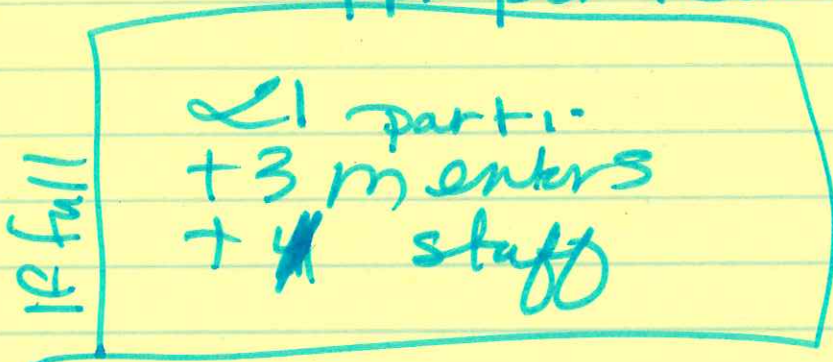 If full
21 parti.
+3 mentors
+ staff